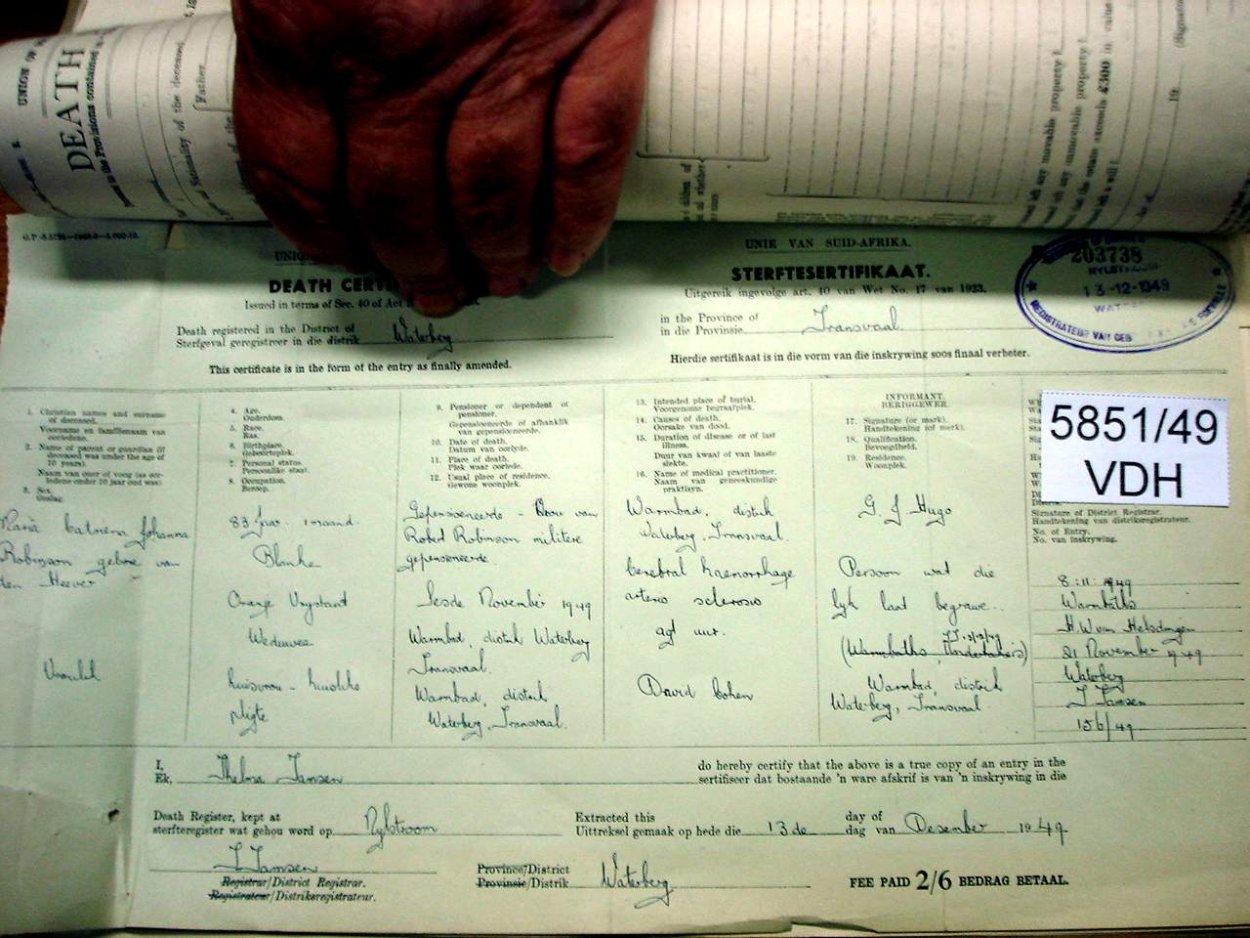 UNION OF
DEATH
Nationality of the deceased
Father
left any movable property
left any immovable property
the estate exceeds £300 in value
left a will
19
UNIE VAN SUID-AFRIKA.
DEATH CERT
STERFTESERTIFIKAAT.
Issued in terms of Sec. 40 of Act
Uitgereik ingevolge art. 40 van Wet No. 17 van 1923.
203738
13-12-1949
REGISTRATEUR VAN GEB
Death registered in the District of
Sterfgeval geregistreer in die distrik Waterberg
in the Province of
in die Provinsie Transvaal.
This certificate is in the form of the entry as finally amended.
Hierdie sertifikaat is in die vorm van die inskrywing soos finaal verbeter.
5851/49
VDH
1. Christian names and surname
of deceased.
Voorname en familienaam van
oorledene.
2. Name of parent or guardian (if
deceased was under the age of
10 years).
Naam van ouer of voog (as oor-
ledene onder 10 jaar oud was)
3. Sex.
Geslag.
Maria Catriena Johanna
Robinson gebore van
den Heever
Vroulik
4. Age.
Ouderdom.
5. Race.
Ras.
6. Birthplace.
Geboorteplek.
7. Personal status.
Persoonlike staat.
8. Occupation.
Beroep.
83 Jaar. 1 maand.
Blanke
Oranje Vrystaat
Weduwee
huisvrou - huislike
pligte
9. Pensioner or dependent of
pensioner.
Gepensioeneerde of afhanklik
van gepensioeneerde.
10. Date of death.
Datum van oorlyde.
11. Place of death.
Plek waar oorlede.
12. Usual place of residence.
Gewone woonplek.
Gepensioeneerde - Vrou van
Robert Robinson militere
gepensioneerde.
Sesde November 1949
Warmbad, distrik Waterberg
Transvaal.
Warmbad, distrik
Waterberg, Transvaal.
13. Intended place of burial.
Voorgenome begraafplek.
14. Causes of death.
Oorsake van dood.
15. Duration of disease or of last
illness.
Duur van kwaal of van laaste
siekte.
16. Name of medical practitioner.
Naam van geneeskundige
praktisyn.
Warmbad, distrik
Waterberg, Transvaal.
Cerebral haemorrhage
arterio sclerosis
agt uur.
David Cohen
INFORMANT.
BERIGGEWER.
17. Signature (or mark).
Handtekening (of merk).
18. Qualification.
Bevoegdheid.
19. Residence.
Woonplek.
G. J. Hugo
Persoon wat die
lyk laat begrawe.
(Warmbaths Undertakers)
Warmbad, distrik
Waterberg, Transvaal
Signature of District Registrar.
Handtekening van distriksregistrateur.
No. of Entry.
No. van inskrywing.
8:11:1949
Warmbaths
H.W. van Helsdingen
21 November 1949
Waterberg
T Jansen
156/49
I,
Ek, Thelma Jansen
do hereby certify that the above is a true copy of an entry in the
sertifiseer dat bostaande 'n ware afskrif is van 'n inskrywing in die
Death Register, kept at
sterfteregister wat gehou word op Nylstroom
Extracted this
Uittreksel gemaak op hede die 13de
day of
dag van Desember 1949
T Jansen
Registrar/District Registrar.
Registrateur/Distriksregistrateur.
Province/District
Provinsie/Distrik Waterberg
FEE PAID 2/6 BEDRAG BETAAL.